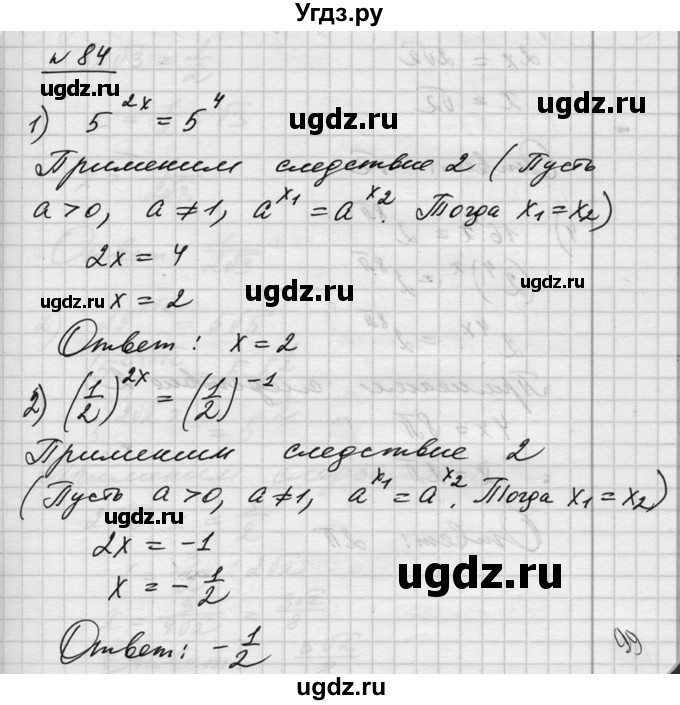 Угдз.ру
№ 84
ugdz.ru ugdz.ru
1) 5^{2x} = 5^4
ugdz.ru ugdz.ru
Применим следствие 2 (Пусть
a > 0, a ≠ 1, a^{x_1} = a^{x_2}. Тогда x_1 = x_2)
2x = 4
ugdz.ru ugdz.ru ugdz.ru
x = 2
Ответ: x = 2
2) (1/2)^{2x} = (1/2)^{-1}
ugdz.ru ugdz.ru
Применим следствие 2
(Пусть a > 0, a ≠ 1, a^{x_1} = a^{x_2}. Тогда x_1 = x_2)
ugdz.ru
2x = -1
x = -1/2
ugdz.ru
Ответ: -1/2
99
ugdz.ru ugdz.ru
ugdz.ru